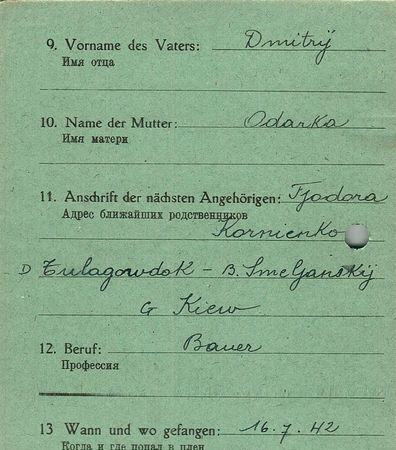 9. Vorname des Vaters: Dmitrij
Имя отца
10. Name der Mutter: Odarka
Имя матери
11. Anschrift der nächsten Angehörigen: Fjodora
Адрес ближайших родственников
Kornienko
D Tulagowdok - B. Smeljanskij
G Kiew
12. Beruf: Bauer
Профессия
13 Wann und wo gefangen: 16.7.42
Когда и где попал в плен